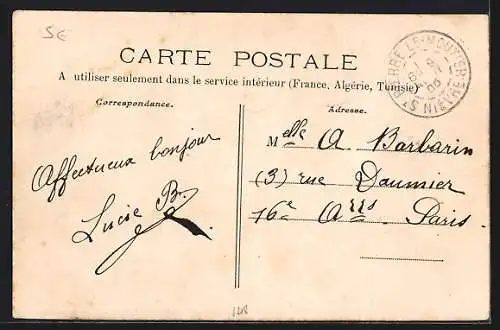 5€
CARTE POSTALE
A utiliser seulement dans le service intérieur (France, Algérie, Tunisie)
Correspondance.
Adresse.
ST PIERRE LE MOUTIER NIEVRE
Affectueux bonjour
Lucie B.
Melle A Barbarin
(3) rue Daumier
16e Arrs Paris